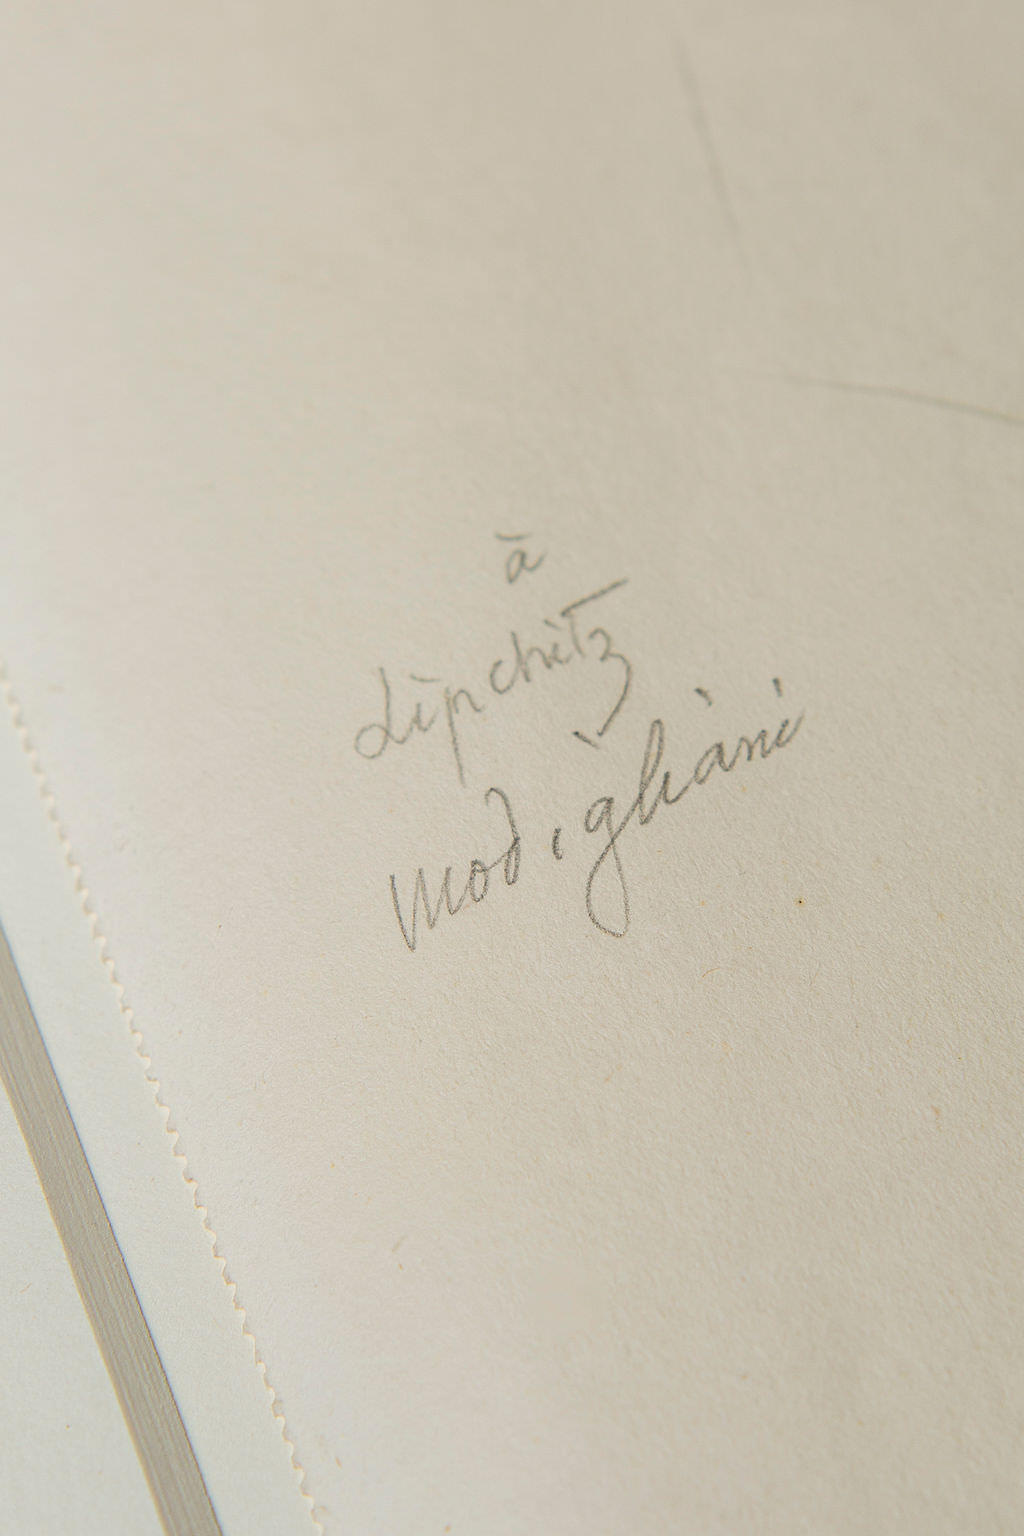 à
Lipchitz
Modigliani